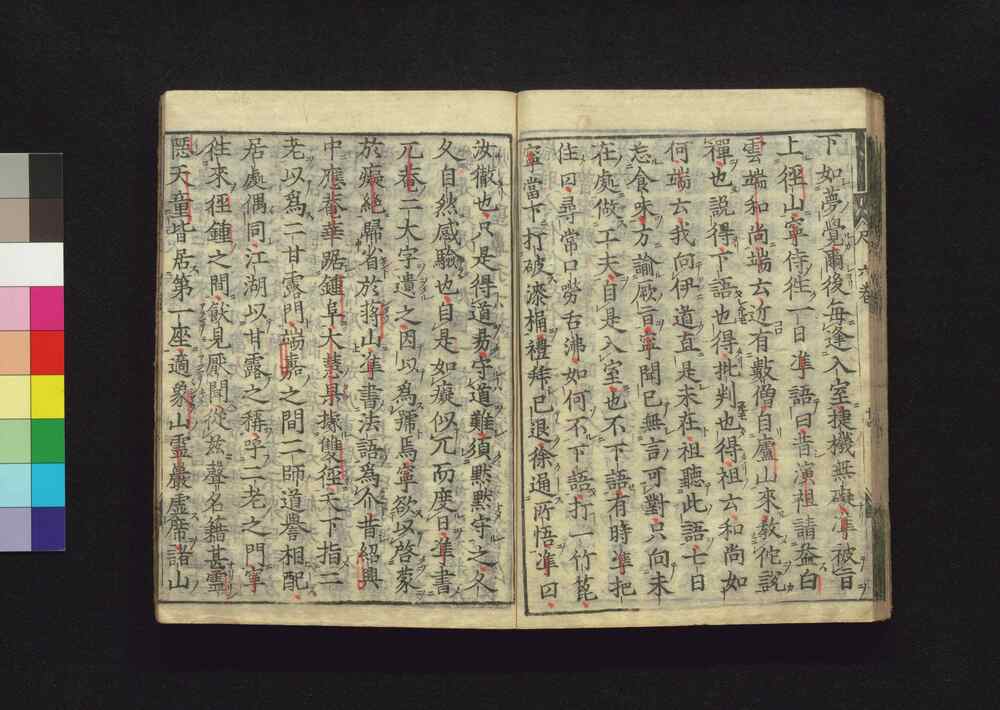 下如夢覺爾後每逢入室捷機無礙準被旨
上徑山寧侍徃一日準語曰昔演祖請益白
雲端和尚端云近有數僧自廬山來教佗說
禪也說得下語也得批判也得祖云和尚如
何端云我向伊道直是未在祖聽此語七日
忘食味方諭厥旨寧聞已無言可對只向未
在處做工夫自是入室也不下語有時準把
住曰尋常口嘮舌沸如何不下語打一竹篦
寧當下打破漆桶禮拜已退徐通所悟準曰
汝徹也只是得道易守道難須默默守之久
久自然感驗也自是如癡似兀而度日準書
兀菴二大字遺之因以爲號焉寧欲以啓蒙
於癡絕歸省於蔣山準書法語爲介昔紹興
中應菴華踞鍾阜大慧杲據雙徑天下指二
老以爲二甘露門端嘉之間二師道譽相配
居處偶同江湖以甘露之稱呼二老之門寧
徃來徑鍾之間飫見厭聞從玆聲名藉甚靈
隱天童皆居第一座適象山靈巖虛席諸山